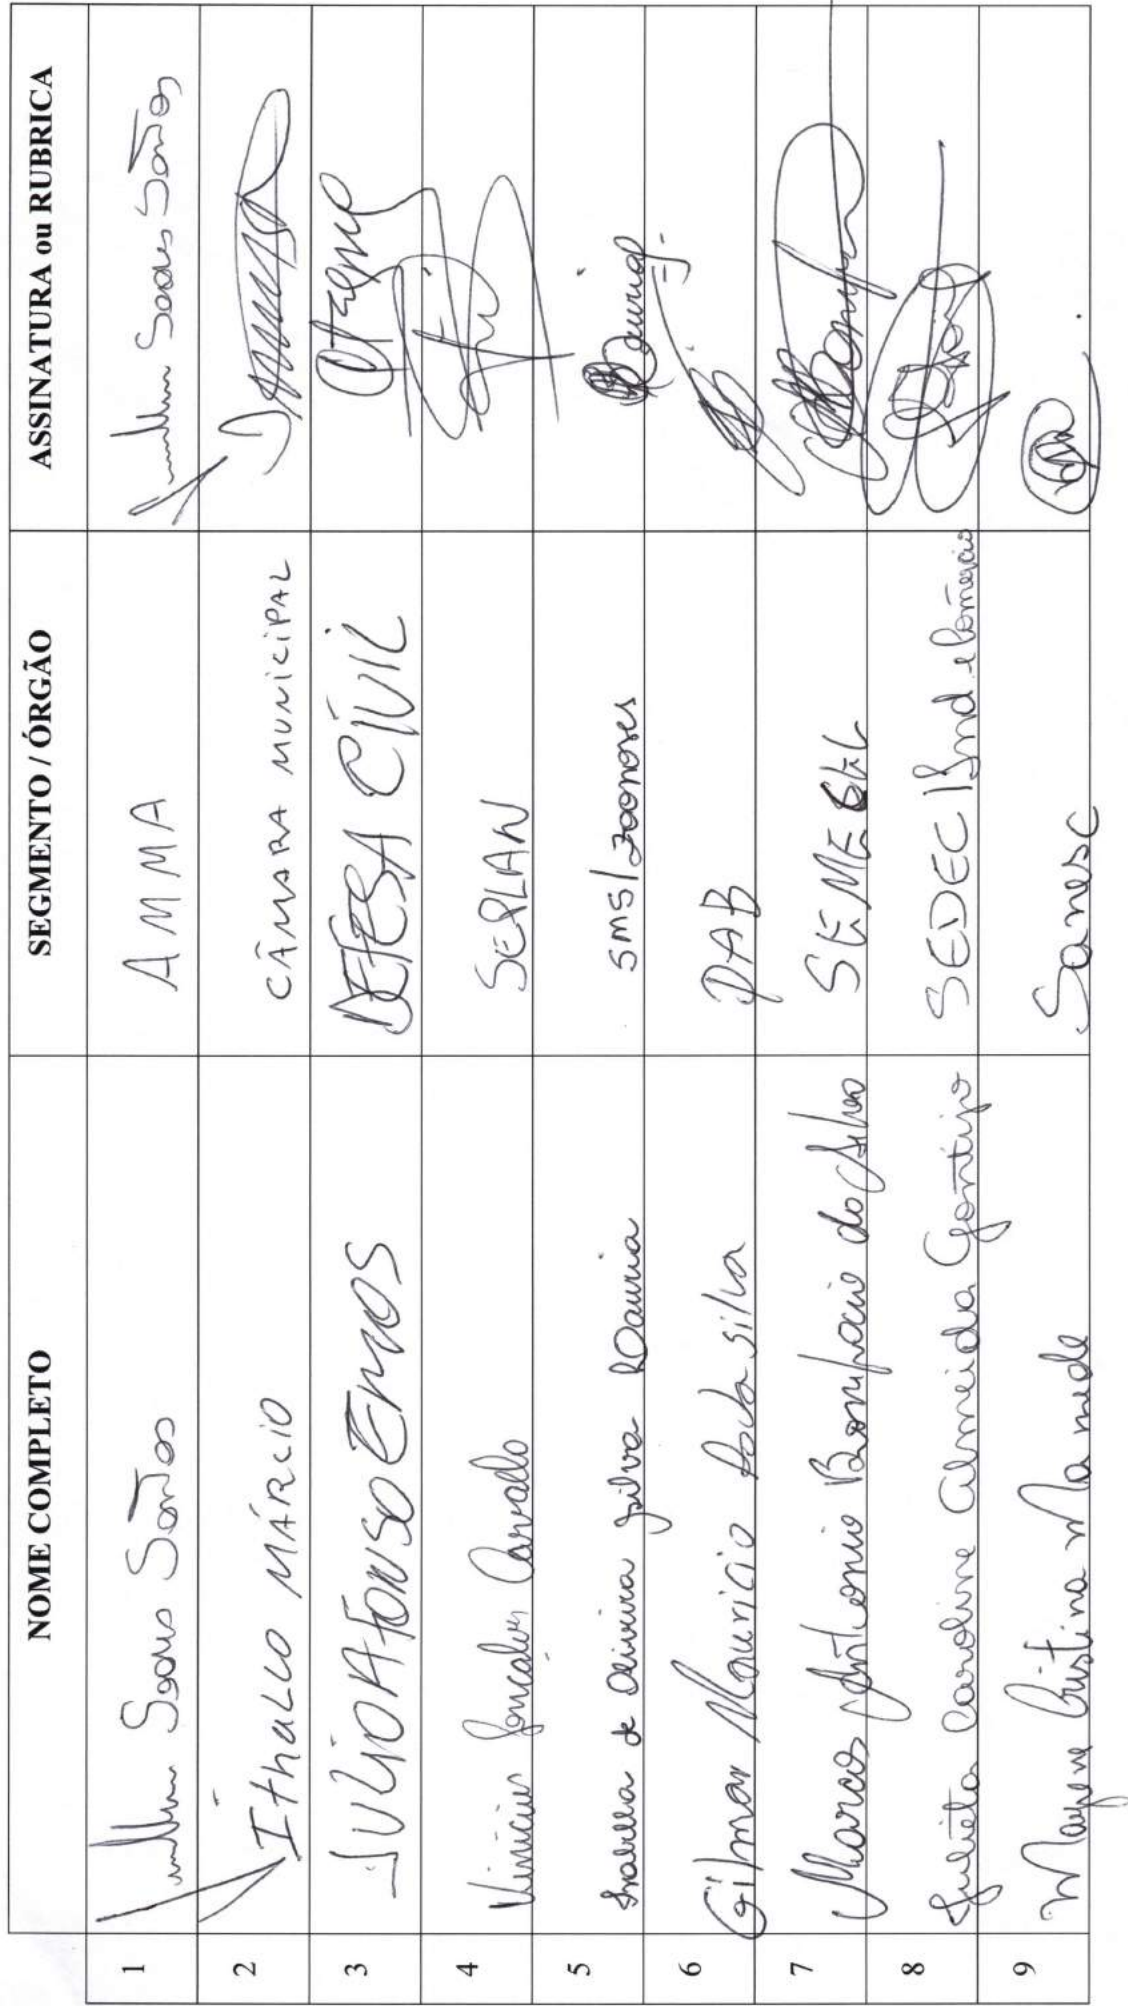 NOME COMPLETO SEGMENTO / ÓRGÃO ASSINATURA ou RUBRICA
1 Soares Santos AMMA Soares Santos
2 Ithallo MÁRCIO CÂMARA MUNICIPAL
3 JULIO AFONSO DEFESA CIVIL
4 Vinicius Gonçalves Carvalho SEPLAN
5 Isabella de Oliveira Silva Dauria SMS/zoonoses Dauria
6 Gilmar Mauricio da silva DAB
7 Marcos Antonio Bonifacio da Silva SEMEEL
8 Julieta Caroline Almeida Gontijo SEDEC Ind. e Comércio
9 Mayene Cristina Mamede Sanesc